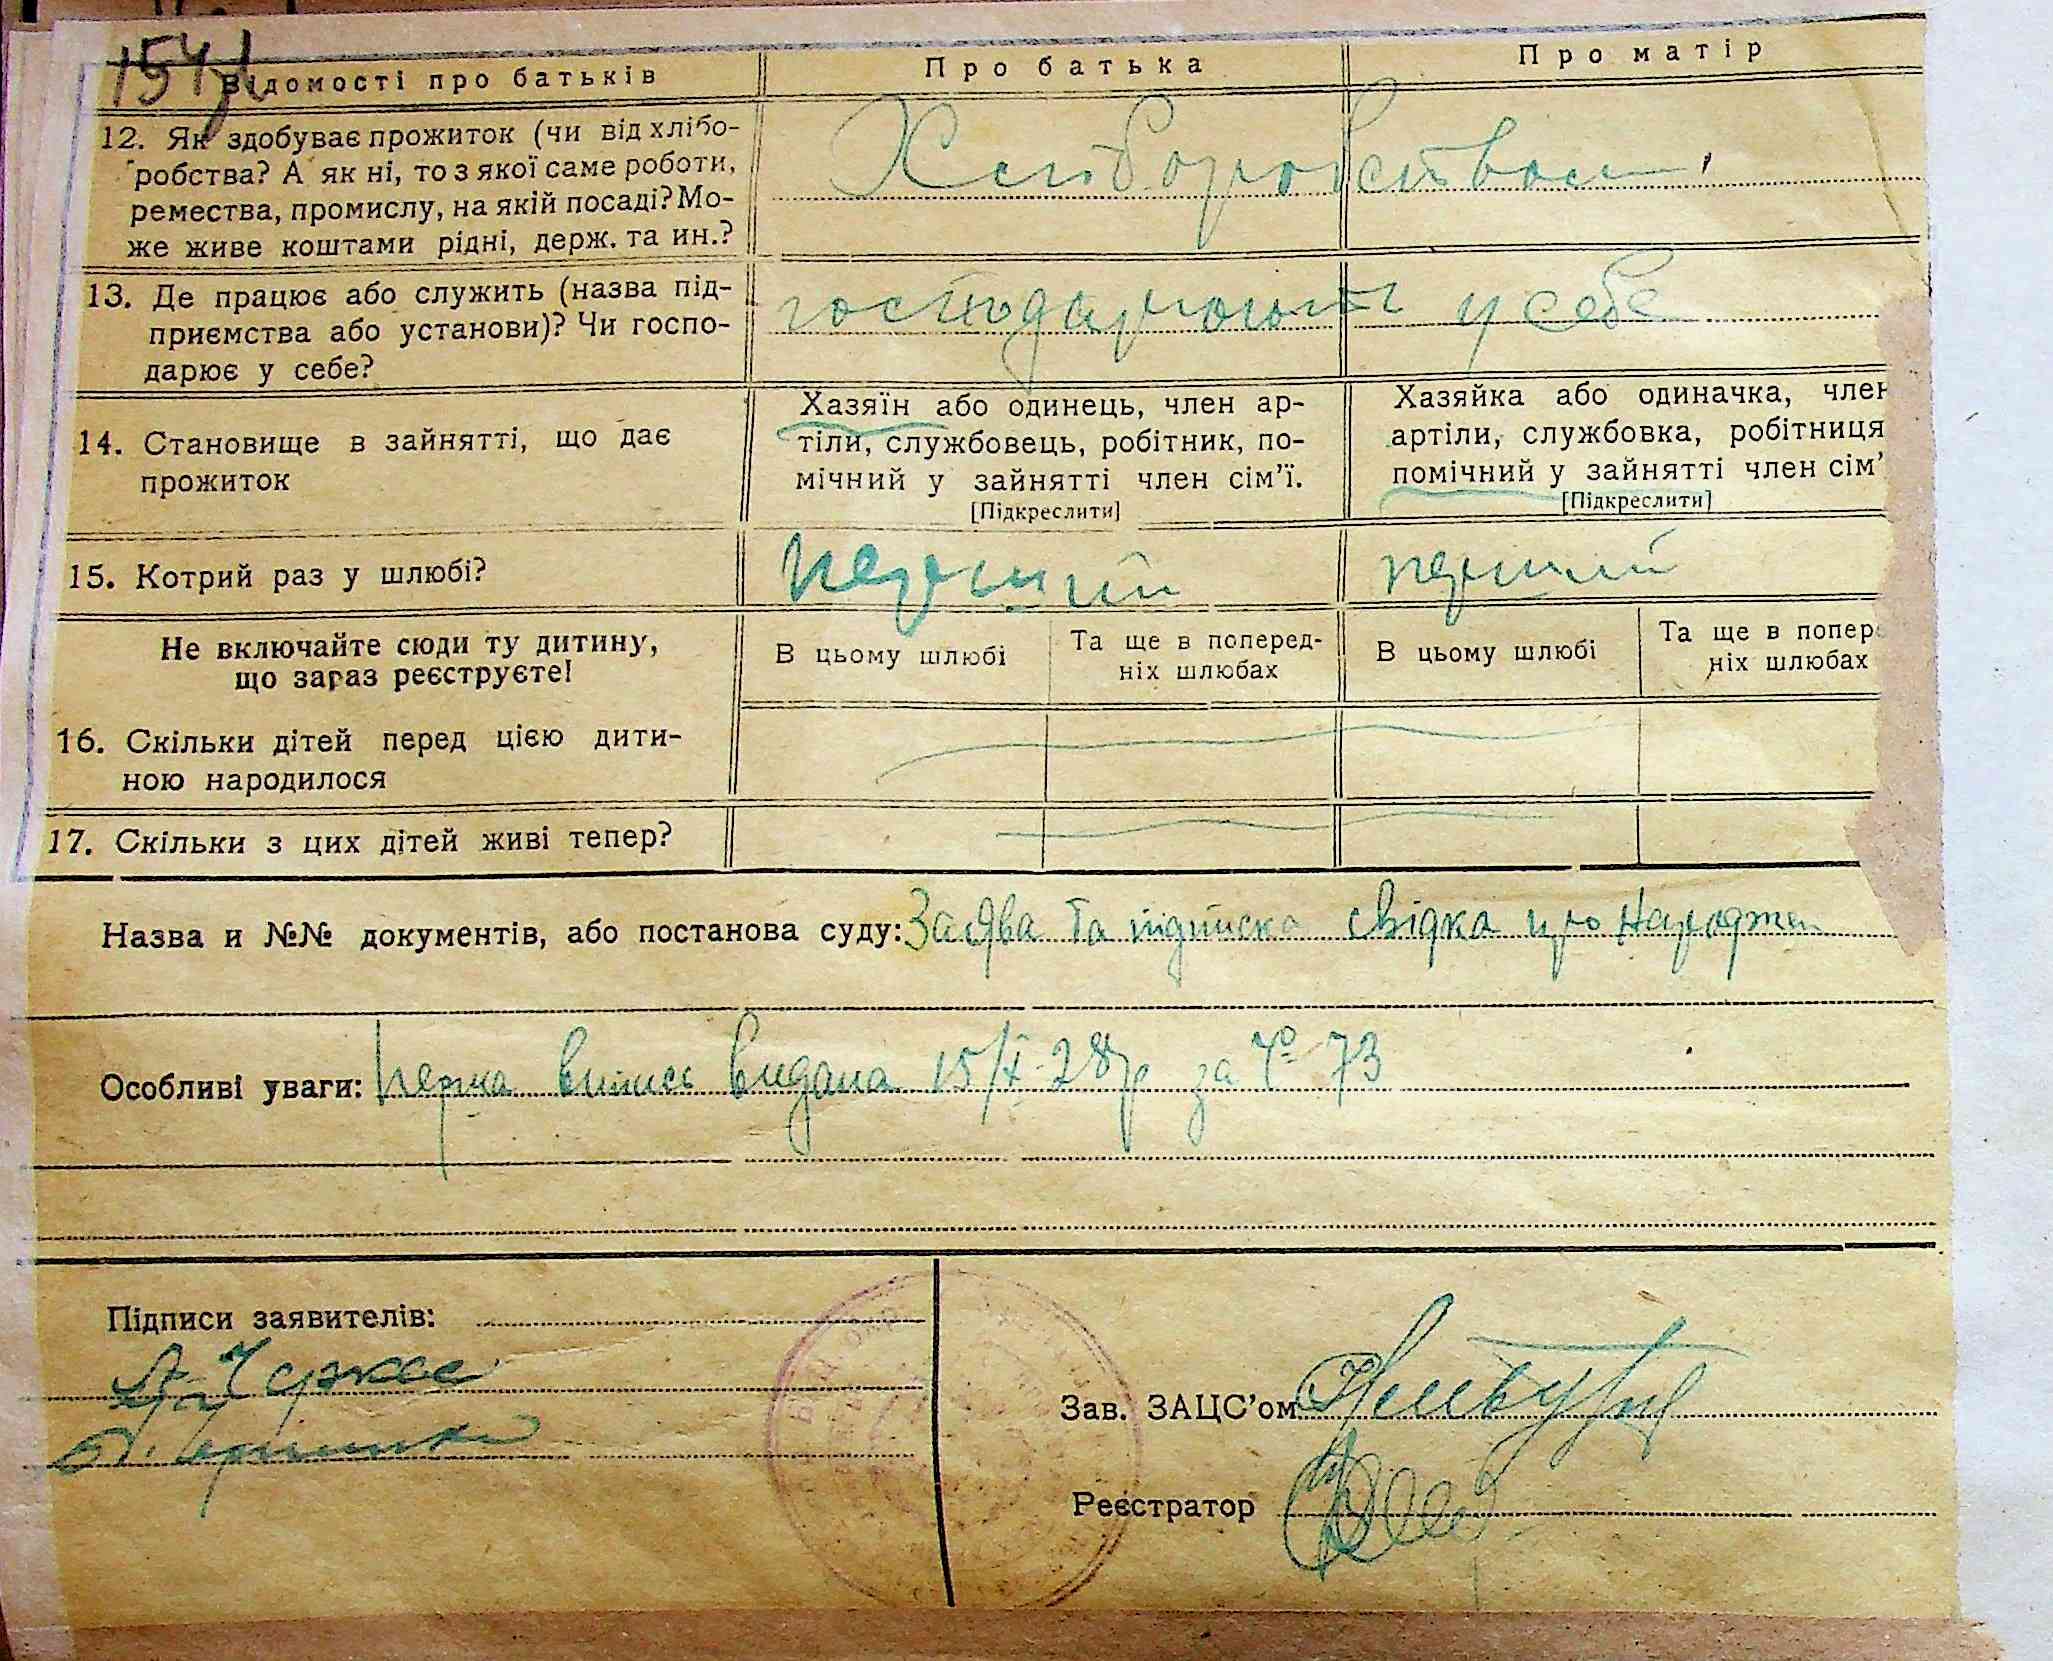 154
Відомості про батьків
Про батька
Про матір
12. Як здобуває прожиток (чи від хлібо-
робства? А як ні, то з якої саме роботи,
ремества, промислу, на якій посаді? Мо-
же живе коштами рідні, держ. та ин.?
Хліборобством
13. Де працює або служить (назва під-
приємства або установи)? Чи госпо-
дарює у себе?
господарюють у себе
14. Становище в зайнятті, що дає
прожиток
Хазяїн або одинець, член ар-
тіли, службовець, робітник, по-
мічний у зайнятті член сім'ї.
[Підкреслити]
Хазяйка або одиначка, член
артіли, службовка, робітниця
помічний у зайнятті член сім'
[Підкреслити]
15. Котрий раз у шлюбі?
перший
перший
Не включайте сюди ту дитину,
що зараз реєструєте!
В цьому шлюбі
Та ще в поперед-
ніх шлюбах
В цьому шлюбі
Та ще в попер
ніх шлюбах
16. Скільки дітей перед цією дити-
ною народилося
17. Скільки з цих дітей живі тепер?
Назва и №№ документів, або постанова суду: Заява та підписка свідка про народжен
Особливі уваги: перша випись видана 15/X-28р за № 73
Підписи заявителів:
Зав. ЗАЦС'ом
Реєстратор